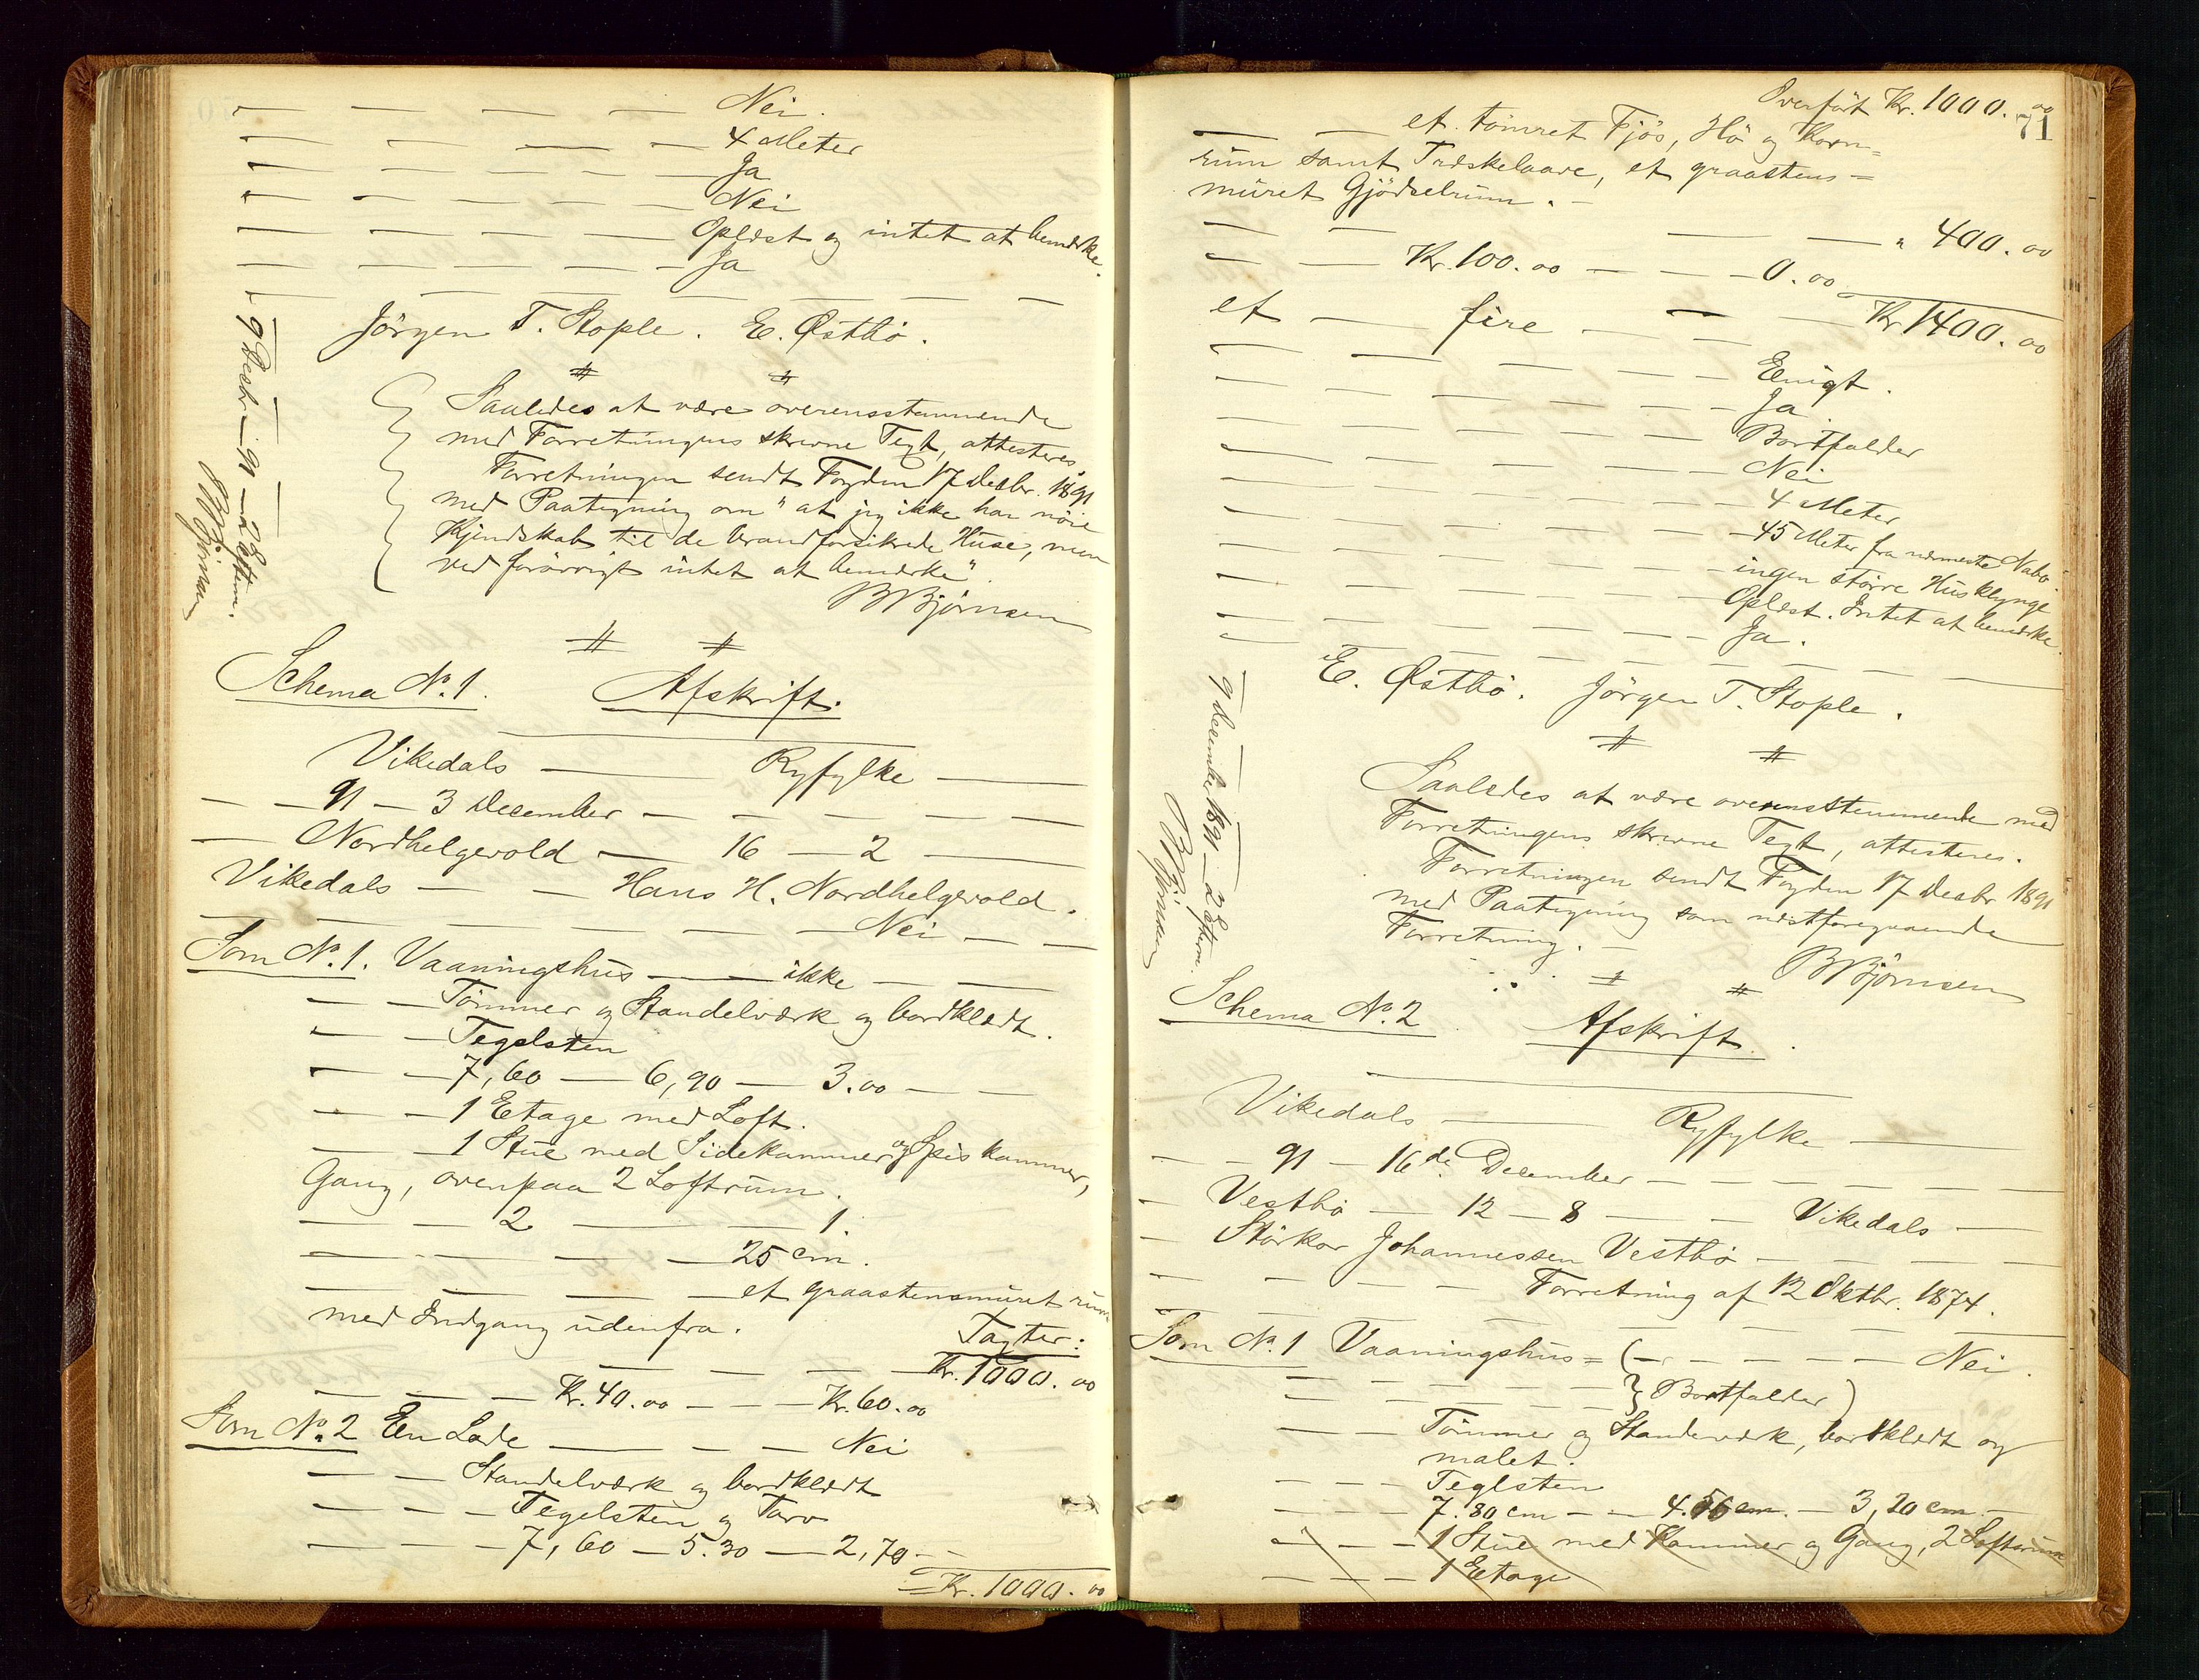 " — — — — — Nei.
" — — — — — 4 Meter
" — — — — — Ja
" — — — — — Nei
" — — — — — Oplæst og intet at bemærke.
" — — — — — Ja
Jörgen T. Stople. E. Østbö.
9 Decbr. — 91 — 2 Efterm.
BBjörnsen
# #
Saaledes at være overensstemmende
med Forretningens skrevne Text, attesteres.
Forretningen sendt Fogden 17 Decbr. 1891
med Paategning om "at jeg ikke har nöie
Kjendskab til de brandforsikrede Huse, men
ved forövrigt intet at bemærke".
BBjörnsen
# #
Schema No. 1. Afskrift.
Vikedals — Ryfylke —
— — 91 — 3 December — — — — —
— Nordhelgevold — 16 — 2 —
Vikedals — — Hans H. Nordhelgevold.
— — — — — — Nei — —
Som No. 1. Vaaningshus — — ikke — —
— — Tömmer og Standelværk og bordklædt.
— — Tegelsten
— — 7,60 — 6,90 — 3.00 — —
— — 1 Etage med Loft.
— — 1 Stue med Sidekammer og Spiskammer,
Gang, ovenpaa 2 Loftrum.
— — 2 — — 1.
— — — — — 25 cm.
— — — — — et graastensmuret rum
med Indgang udenfra.
Taxter:
— — — — Kr. 1000.00
— — — Kr. 40.00 — — — Kr. 60.00
Som No. 2 En Lade — — — Nei
— — Standelværk og bordklædt
— — — Tegelsten og Torv
— — — 7,60 — 5.30 — 2,70 —
Kr. 1000.00
Overfört Kr. 1000.00
71
— — et tömret Fjös, Hö og Korn=
rum samt Træskelaave, et graastens=
muret Gjödselrum. —
— — — — " 400.00
— — Kr. 100.00 — — — 0.00
et — fire — — — Kr 1400.00
— — — — — Enigt.
— — — — — Ja.
— — — — — Bortfalder
— — — — — Nei
— — — — — 4 Meter
— — — — — 45 Meter fra nærmeste Nabo
— — — — — ingen större Husklynge
— — — — — Oplæst. Intet at bemærke.
— — — — — Ja.
E. Østbö. Jörgen T. Stople.
9 December 1891 — 2 Efterm.
BBjörnsen
# #
Saaledes at være overensstemmende med
Forretningens skrevne Text, attesteres.
Forretningen sendt Fogden 17 Decbr 1891
med Paategning som næstforegaaende
Forretning. —
BBjörnsen
# #
Schema No. 2 Afskrift.
Vikedals — Ryfylke —
— — 91 — 16de December — — — — —
— Vestbö — 12 — 8 — — Vikedals —
— Störkor Johannessen Vestbö — — — —
— — — — — Forretning af 12 Oktbr. 1874.
Som No. 1 Vaaningshus = (— — — — — Nei.
— — — — — } Bortfalder )
— — Tömmer og Standerværk, bordklædt og
malet.
— — Teglsten
— — — 7.80 cm — — 4.56 cm. — 3,20 cm. —
— — — 1 Stue med Kammer og Gang, 2 Loftsrum
— — — 1 Etage